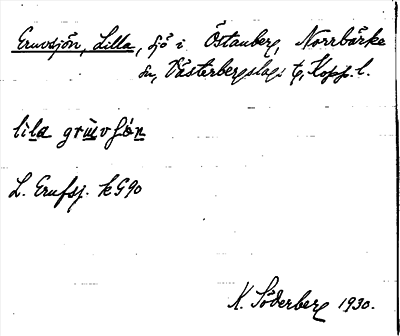 Gruvsjön, Lilla, sjö i Östanberg, Norrbärke
sn, Västerbergslags tg, Kopp. l.
lìla grùvʃön
L. Grufsj. k G 90
K. Söderberg 1930.